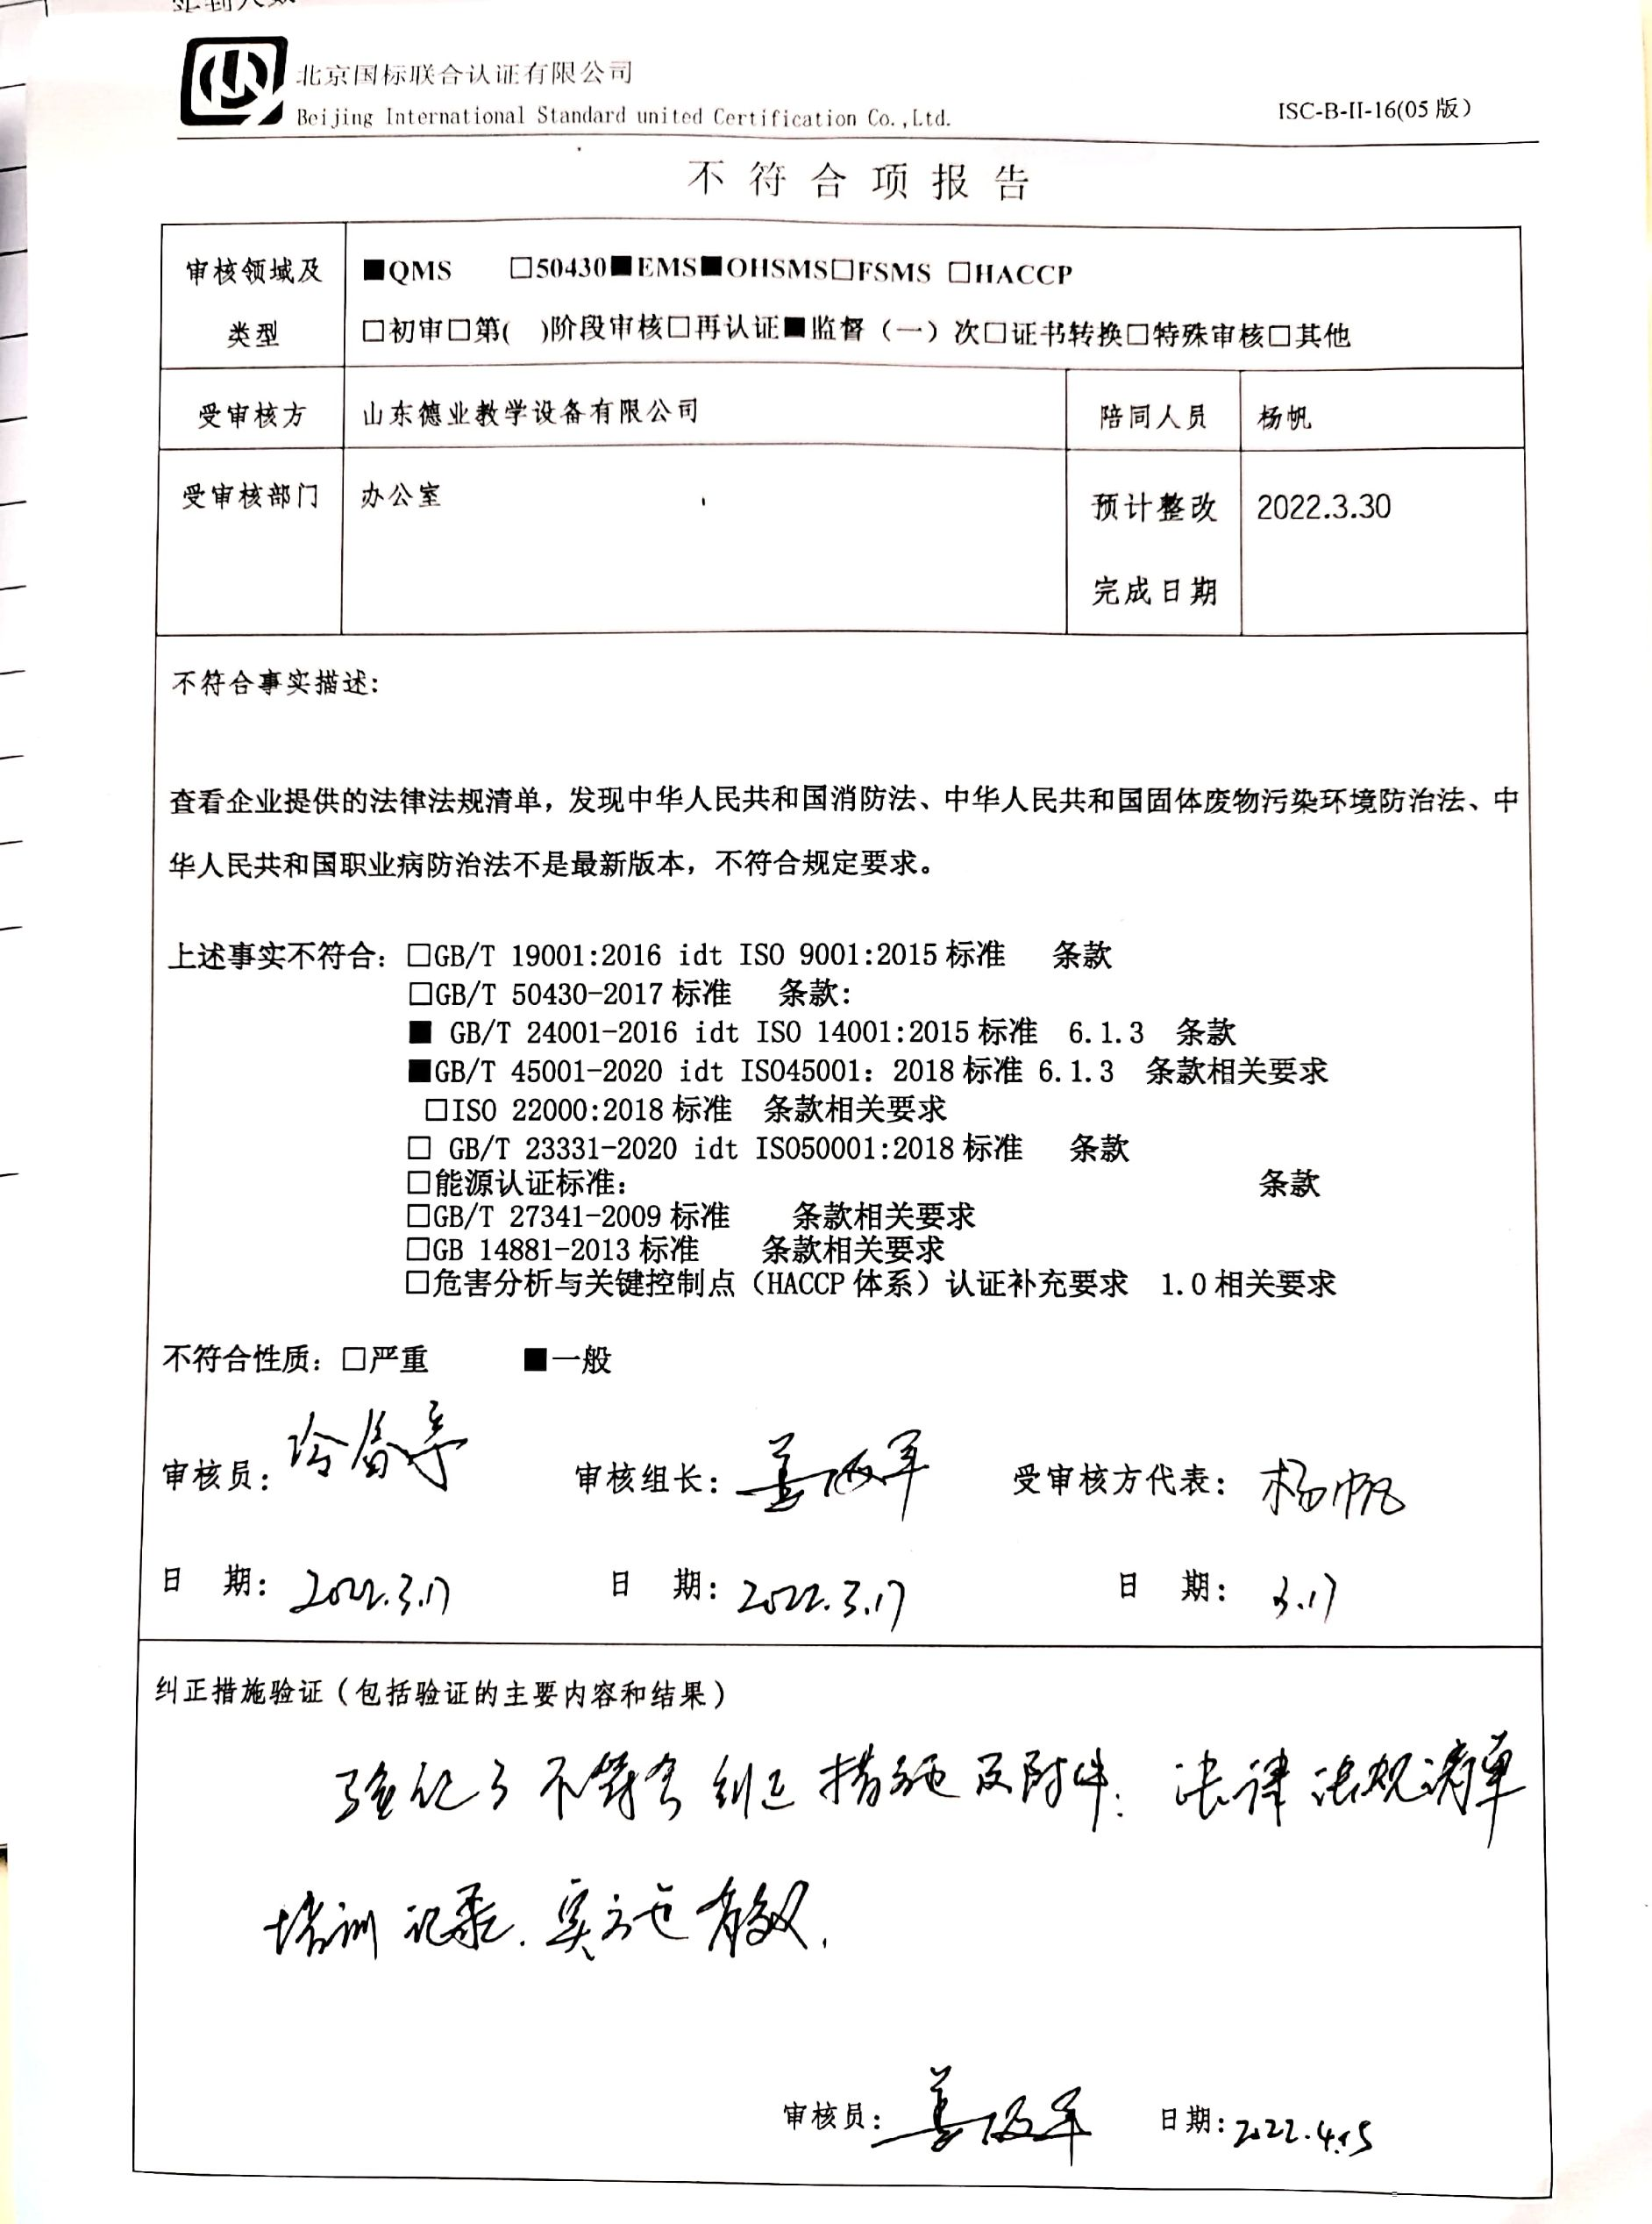 北京国标联合认证有限公司
Beijing International Standard united Certification Co.,Ltd.
ISC-B-II-16(05版)
不符合项报告
审核领域及类型
■QMS □50430■EMS■OHSMS□FSMS □HACCP
□初审□第( )阶段审核□再认证■监督（一）次□证书转换□特殊审核□其他
受审核方 山东德业教学设备有限公司 陪同人员 杨帆
受审核部门 办公室 预计整改完成日期 2022.3.30
不符合事实描述:
查看企业提供的法律法规清单，发现中华人民共和国消防法、中华人民共和国固体废物污染环境防治法、中
华人民共和国职业病防治法不是最新版本，不符合规定要求。
上述事实不符合: □GB/T 19001:2016 idt ISO 9001:2015标准 条款
□GB/T 50430-2017标准 条款:
■ GB/T 24001-2016 idt ISO 14001:2015标准 6.1.3 条款
■GB/T 45001-2020 idt ISO45001：2018标准 6.1.3 条款相关要求
□ISO 22000:2018标准 条款相关要求
□ GB/T 23331-2020 idt ISO50001:2018标准 条款
□能源认证标准: 条款
□GB/T 27341-2009标准 条款相关要求
□GB 14881-2013标准 条款相关要求
□危害分析与关键控制点（HACCP体系）认证补充要求 1.0相关要求
不符合性质: □严重 ■一般
审核员: 审核组长: 受审核方代表: 杨帆
日 期: 2022.3.17 日 期: 2022.3.17 日 期: 3.17
纠正措施验证（包括验证的主要内容和结果）
验证了不符合纠正措施及附件: 法律法规清单
培训记录. 实施有效.
审核员: 日期: 2022.4.5